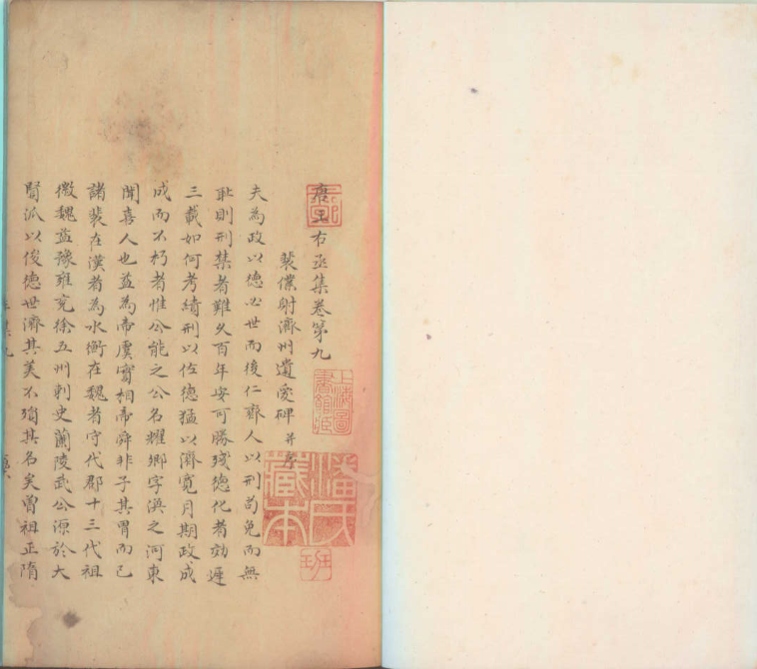 唐王右丞集卷第九
裴僕射濟州遺愛碑 并序
夫為政以德必世而後仁齊人以刑苟免而無
恥則刑禁者難久百年安可勝殘德化者効遲
三載如何考績刑以佐德猛以濟寛月期政成
成而不朽者惟公能之公名耀卿字渙之河東
聞喜人也益為帝虞實相帝舜非子其胃而已
諸裴在漢者為水衡在魏者守代郡十三代祖
徽魏益豫雍兖徐五州刺史蘭陵武公源於大
賢派以俊德世濟其美不殞其名矣曾祖正隋
上海圖書館藏
潘氏藏本